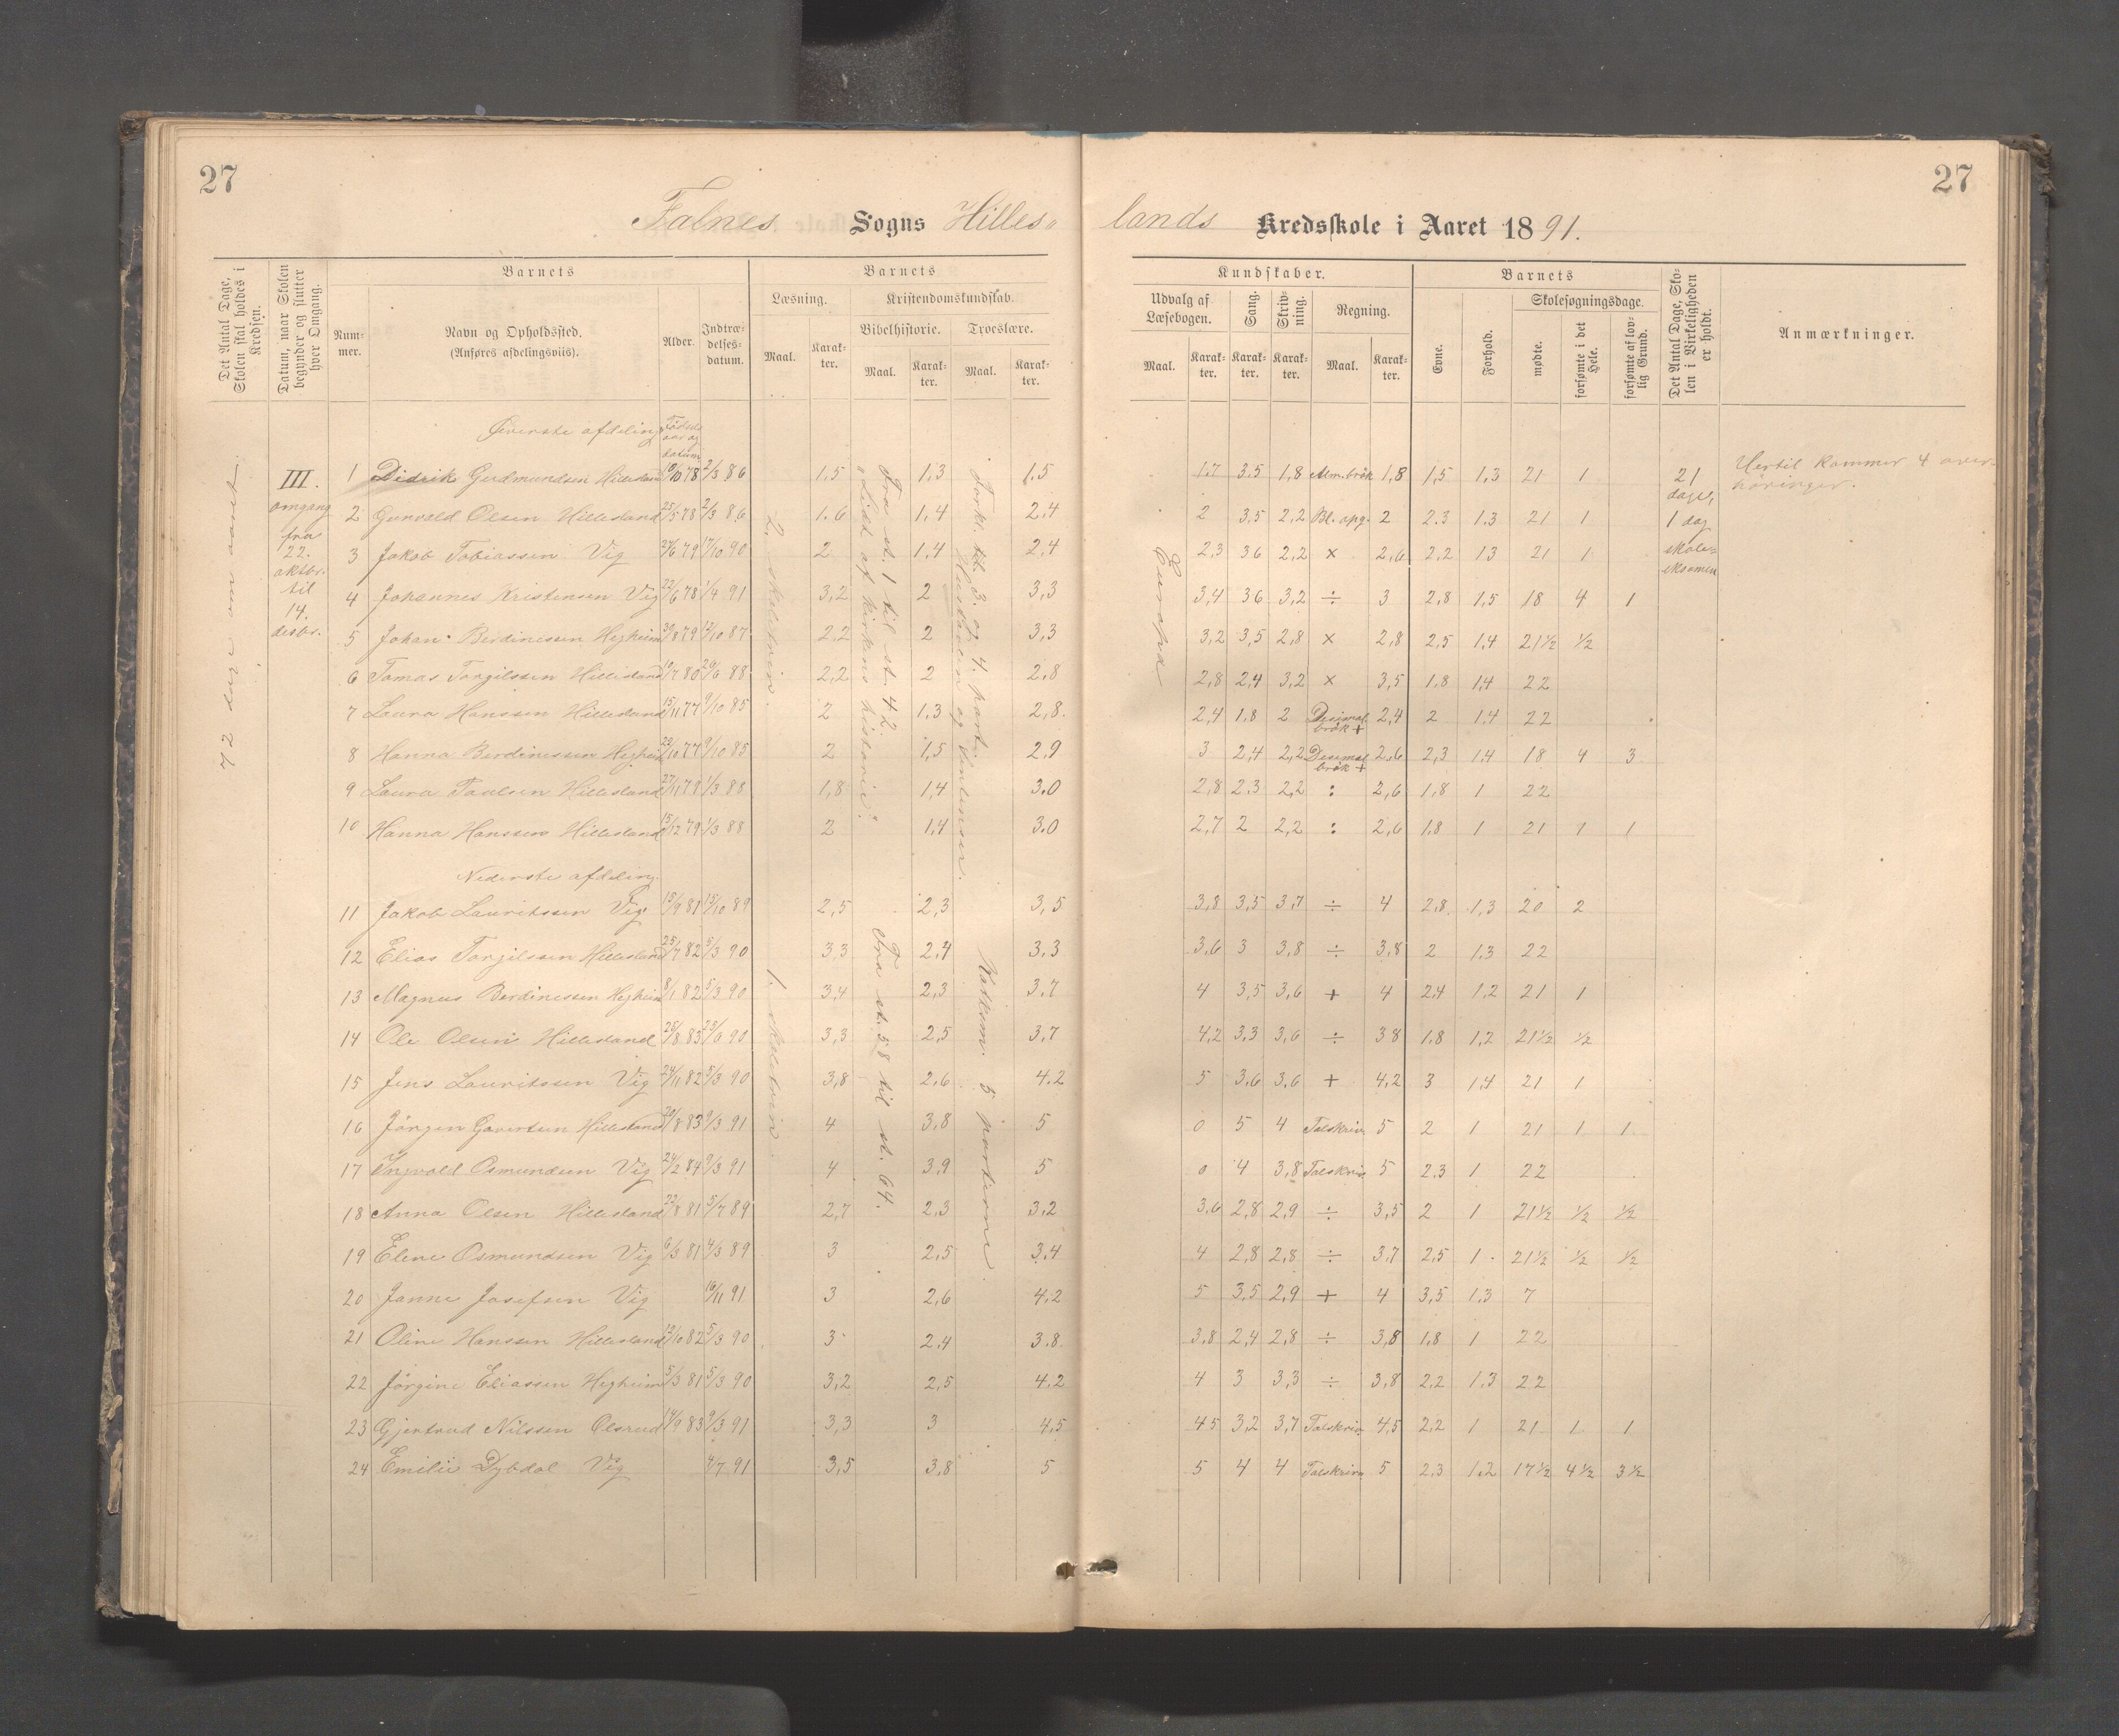 27
27
Falnes Sogns Hilles-
lands Kredsskole i Aaret 1891.
Det Antal Dage, Skolen skal holdes i Kredsen.
Datum, naar Skolen begynder og slutter hver Omgang.
Barnets
Nummer.
Navn og Opholdssted.
(Anføres afdelingsviis).
Alder.
Indtrædelsesdatum.
Barnets
Læsning.
Kristendomskundskab.
Bibelhistorie.
Troeslære.
Maal.
Karakter.
Maal.
Karakter.
Maal.
Karakter.
Kundskaber.
Udvalg af Læsebogen.
Maal.
Karakter.
Sang.
Karakter.
Skrivning.
Karakter.
Regning.
Maal.
Karakter.
Barnets
Evne.
Forhold.
Skolesøgningsdage.
mødte.
forsømte i det Hele.
forsømte af lovlig Grund.
Det Antal Dage, Skolen i Virkeligheden er holdt.
Anmærkninger.
Øverste afdeling.
Fødselsaar og datum
III.
omgang
fra
22.
oktbr.
til
14.
desbr.
1 Didrik Gudmundsen Hillesland 2/3 86 1,5 1,3 1,5 1,7 3,5 1,8 Alm. brök 1,8 1,5 1,3 21 1
2 Gunvald Olsen Hillesland 25/5 78 2/3 86 1.6 1,4 2,4 2 3,5 2,2 Bl. opg. 2 2.3 1.3 21 1
3 Jakob Tobiassen Vig 27/6 79 17/10 90 2 1,4 2,4 2,3 36 2,2 × 2,6 2,2 13 21 1
4 Johannes Kristensen Vig 22/6 78 1/4 91 3,2 2 3,3 3,4 36 3,2 ÷ 3 2,8 1,5 18 4 1
5 Johan Berdinessen Hegheim 30/8 79 12/10 87 2,2 2 3,3 3,2 3,5 2,8 × 2,8 2,5 1.4 21½ ½
6 Tomas Torgilssen Hillesland 19/7 80 29/6 88 2,2 2 2.8 2,8 2,4 3,2 × 3,5 1.8 1,4 22
7 Laura Hanssen Hillesland 15/11 77 9/10 85 2 1,3 2,8. 2,4 1.8 2 Desimalbrök + 2,4 2 1.4 22
8 Hanna Berdinessen Hegheim 29/10 77 9/10 85 2 1,5 2.9 3 2,4 2,2 Desimalbrök + 2,6 2,3 1.4 18 4 3
9 Laura Paulsen Hillesland 27/11 79 1/3 88 1,8 1,4 3.0 2,8 2.3 2,2 : 2,6 1,8 1 22
10 Hanna Hanssen Hillesland 15/12 79 1/3 88 2 1.4 3.0 2,7 2 2,2 : 2,6 1.8 1 21 1 1
Nederste afdeling.
11 Jakob Lauritssen Vig 15/9 81 15/10 89 2,5 2,3 3,5 3,8 3,5 3,7 ÷ 4 2,8. 1,3 20 2
12 Elias Torgilssen Hillesland 25/7 82 5/3 90 3,3 2.4 3.3 3,6 3 3,8 ÷ 3,8 2 1.3 22
13 Magnus Berdinessen Hegheim 8/1 82 5/3 90 3,4 2,3 3,7 4 3,5 3,6 + 4 2,4 1.2 21 1
14 Ole Olsen Hillesland 25/8 83 23/6 90 3,3 2,5 3,7 4,2 3.3 3,6 ÷ 38 1.8 1,2 21½ ½
15 Jens Lauritssen Vig 24/11 82 5/3 90 3,8 2.6 4.2 5 3.6 3,6 + 4,2 3 1.4 21 1
16 Jörgen Govertsen Hillesland 20/8 83 9/3 91 4 3,8 5 0 5 4 Talskriv. 5 2 1 21 1 1
17 Ingvald Osmundsen Vig 24/2 84 9/3 91 4 3,9 5 0 4 3,8 Talskriv. 5 2.3 1 22
18 Anna Olsen Hillesland 22/8 81 5/7 89 2,7 2.3 3.2 3,6 2,8 2,9 ÷ 3,5 2 1 21½ ½ ½
19 Elene Osmundsen Vig 6/3 81 4/3 89 3 2.5 3.4 4 2,8 2,8 ÷ 3.7 2,5 1 21½ ½ ½
20 Janne Josefsen Vig 16/11 91 3 2,6 4.2 5 3.5 2.9 + 4 3,5 1.3 7
21 Oline Hanssen Hillesland 12/10 82 5/3 90 3 2.4 3.8. 3,8 2,4 2,8 ÷ 3,8 1.8 1 22
22 Jörgine Eliassen Hegheim 5/3 81 5/3 90 3,2 2,5 4.2 4 3 3,3 ÷ 3,8 2,2 1.3 22
23 Gjertrud Nilssen Olsrud 14/9 83 9/3 91 3,3 3 4.5 45 3,2 3,7 Talskriv. 4,5 2,2 1 21 1 1
24 Emilie Dybdal Vig 4/7 91 3,5 3,8 5 5 4 4 Talskriv. 5 2,3 1.2 17½ 4½ 3½
2. skoletrin.
Fra st. 1 til st. 42.
Lidt af kirkens historie.
Forkl. til 3. og 4. part.
1. skoletrin.
Fra st. 58 til st. 64.
Katekism. 5 parterne.
Europa
21
dage,
1 dag
skole-
eksamen
Hertil kommer 4 over-
höringer.